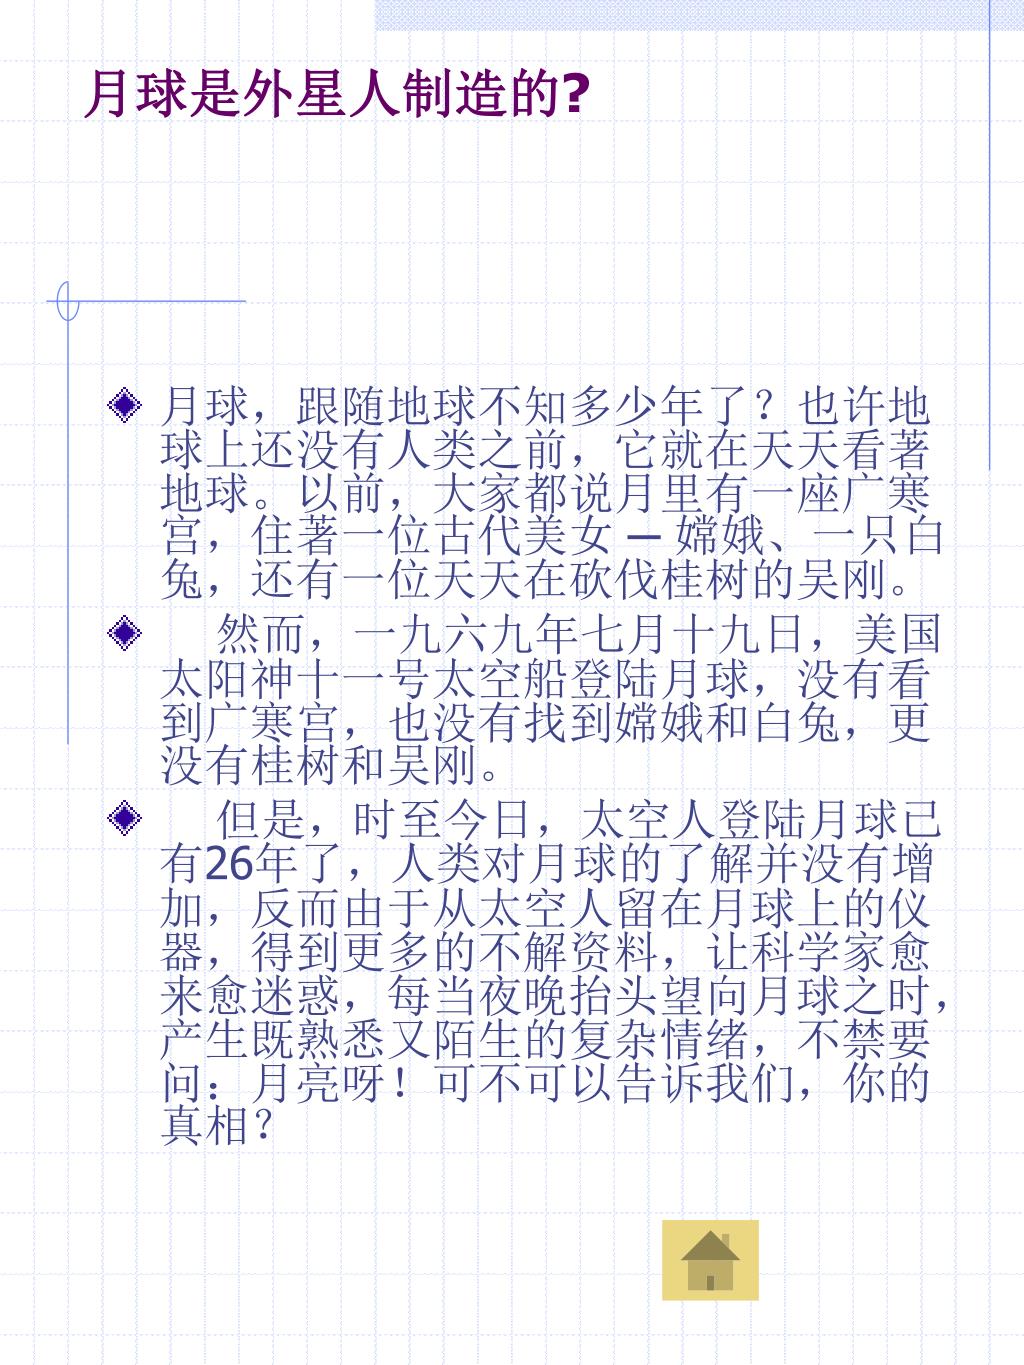 月球是外星人制造的?
月球，跟随地球不知多少年了？也许地
球上还没有人类之前，它就在天天看著
地球。以前，大家都说月里有一座广寒
宫，住著一位古代美女 — 嫦娥、一只白
兔，还有一位天天在砍伐桂树的吴刚。
然而，一九六九年七月十九日，美国
太阳神十一号太空船登陆月球，没有看
到广寒宫，也没有找到嫦娥和白兔，更
没有桂树和吴刚。
但是，时至今日，太空人登陆月球已
有26年了，人类对月球的了解并没有增
加，反而由于从太空人留在月球上的仪
器，得到更多的不解资料，让科学家愈
来愈迷惑，每当夜晚抬头望向月球之时，
产生既熟悉又陌生的复杂情绪，不禁要
问：月亮呀！可不可以告诉我们，你的
真相？